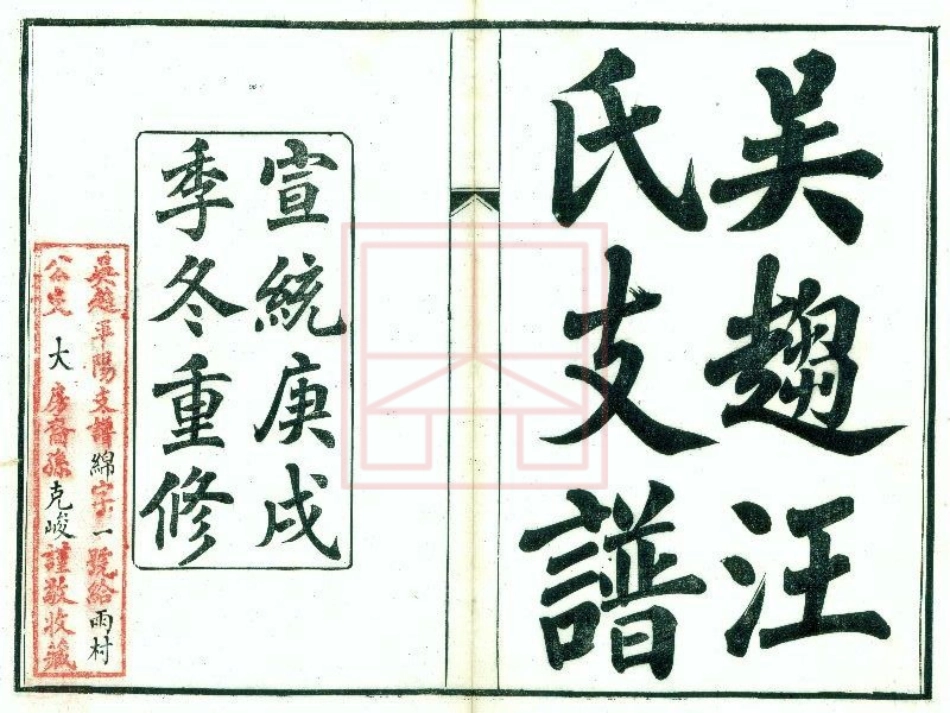 吴趨汪
氏支譜
宣統庚戌
季冬重修
吳趨平陽支譜綿字一號給雨村
公支大房裔孫克峻謹敬收藏